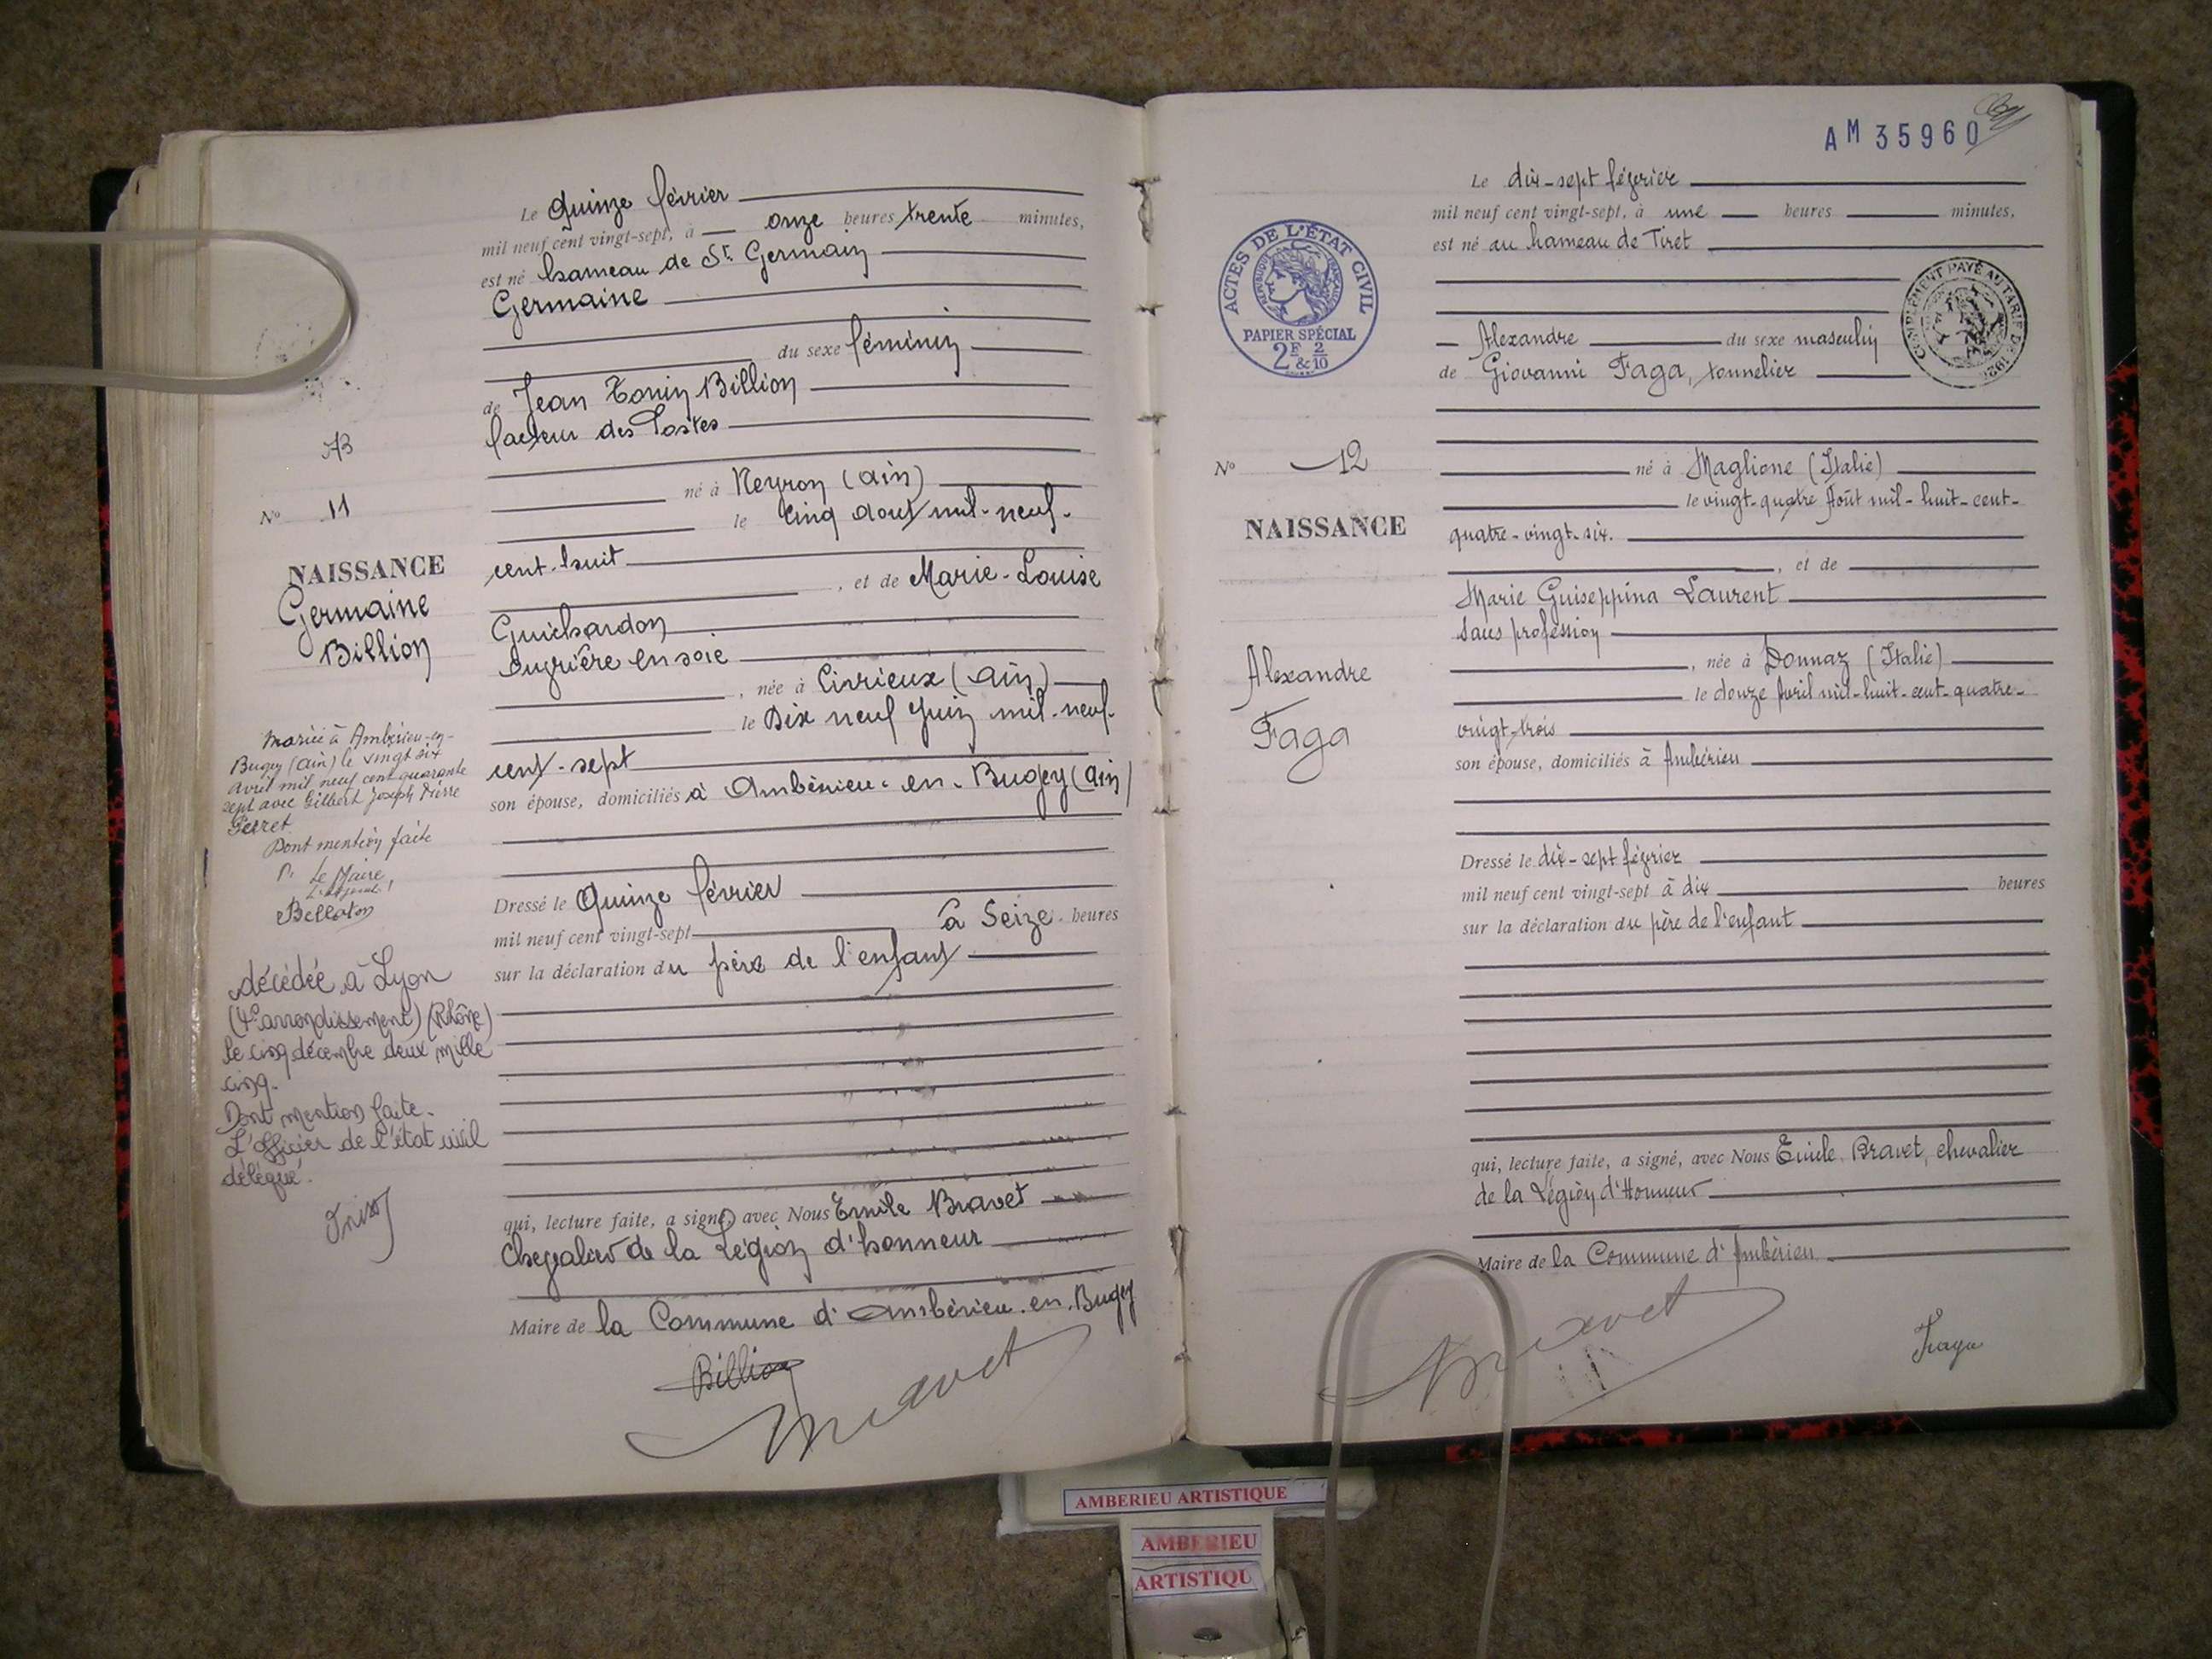 Le Quinze février
mil neuf cent vingt-sept, à onze heures trente minutes,
est né hameau de St Germain
Germaine
du sexe féminin
de Jean Tonin Billion
facteur des Postes
né à Neyron (ain)
le cinq aout mil-neuf-
cent-huit
, et de Marie-Louise
Guichardon
ouvrière en soie
, née à Civrieux (ain)
le Dix neuf juin mil-neuf-
cent-sept
son épouse, domiciliés à Ambérieu-en-Bugey (ain)
Dressé le Quinze février
mil neuf cent vingt-sept à Seize heures
sur la déclaration du père de l'enfant
qui, lecture faite, a signé, avec Nous Emile Bravet
Chevalier de la Légion d'honneur
Maire de la Commune d'Ambérieu-en-Bugey
Billion
Bravet
No 11
NAISSANCE
Germaine
Billion
Mariée à Ambérieu-en-
Bugey (ain) le vingt six
avril mil neuf cent quarante
sept avec Gilbert Joseph Pierre
Perret
Dont mention faite
P. Le Maire,
L'adjoint
Bellaton
décédée à Lyon
(4e arrondissement) (Rhône)
le cinq décembre deux mille
cinq.
Dont mention faite.
L'officier de l'état civil
délégué.
AM 35960
ACTES DE L'ÉTAT CIVIL
RÉPUBLIQUE FRANÇAISE
PAPIER SPÉCIAL
2F & 2/10
COMPLÉMENT PAYÉ AU TARIF DE
Le dix-sept février
mil neuf cent vingt-sept, à une heures minutes,
est né au hameau de Tiret
Alexandre du sexe masculin
de Giovanni Faga, tonnelier
né à Maglione (Italie)
le vingt-quatre Août mil-huit-cent-
quatre-vingt-six.
, et de
Marie Guiseppina Laurent
sans profession
, née à Donnaz (Italie)
le douze Avril mil-huit-cent-quatre-
vingt-trois
son épouse, domiciliés à Ambérieu
Dressé le dix-sept février
mil neuf cent vingt-sept à dix heures
sur la déclaration du père de l'enfant
qui, lecture faite, a signé, avec Nous Emile Bravet, chevalier
de la Légion d'Honneur
Maire de la Commune d'Ambérieu
Bravet
Faga
No 12
NAISSANCE
Alexandre
Faga
AMBERIEU ARTISTIQUE
AMBERIEU
ARTISTIQU